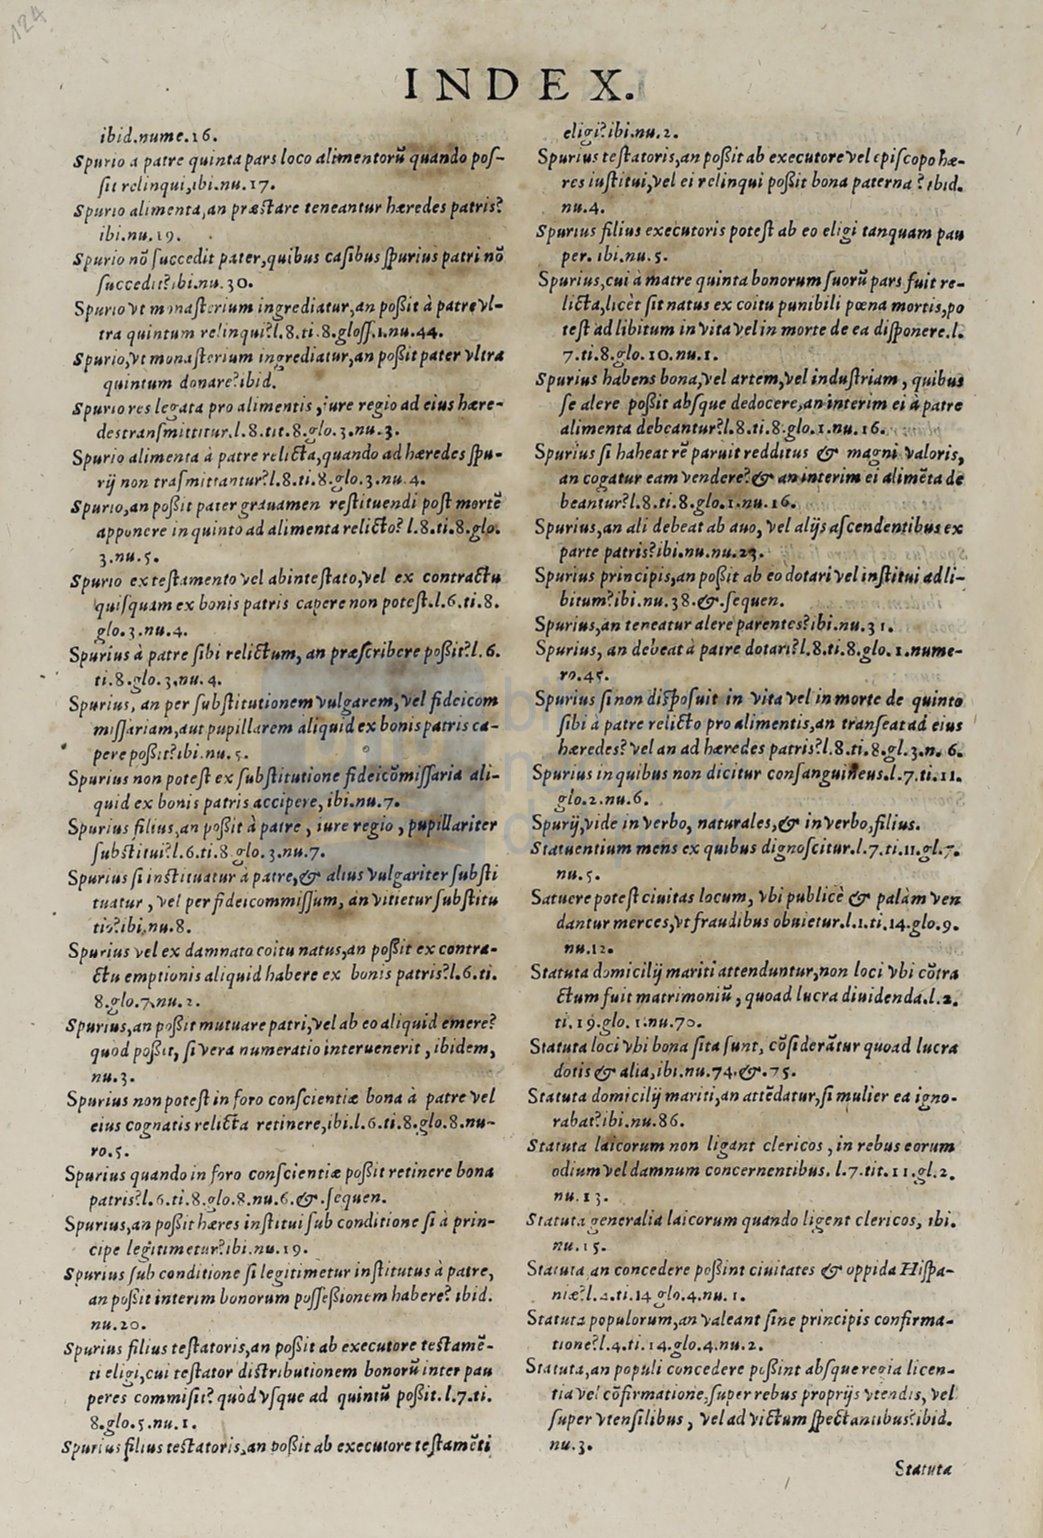 124
INDEX.
ibid.nume.16.
Spurio a patre quinta pars loco alimentorũ quando pos-
sit relinqui,ibi.nu.17.
Spurio alimenta,an præstare teneantur hæredes patris?
ibi.nu.19.
Spurio nõ succedit pater,quibus casibus spurius patri nõ
succedit?ibi.nu.30.
Spurio vt monasterium ingrediatur,an poßit à patre vl-
tra quintum relinqui?l.8.ti.8.gloss.1.nu.44.
Spurio,vt monasterium ingrediatur,an poßit pater vltra
quintum donare?ibid.
Spurio res legata pro alimentis,iure regio ad eius hære-
des transmittitur.l.8.tit.8.glo.3.nu.3.
Spurio alimenta à patre relicta,quando ad hæredes spu-
rij non trasmittantur?l.8.ti.8.glo.3.nu.4.
Spurio,an poßit pater grauamen restituendi post mortẽ
apponere in quinto ad alimenta relicto? l.8.ti.8.glo.
3.nu.5.
Spurio ex testamento vel abintestato,vel ex contractu
quisquam ex bonis patris capere non potest.l.6.ti.8.
glo.3.nu.4.
Spurius à patre sibi relictum, an præscribere poßit?l.6.
ti.8.glo.3.nu.4.
Spurius, an per substitutionem vulgarem,vel fideicom
missariam,aut pupillarem aliquid ex bonis patris ca-
pere poßit?ibi.nu.5.
Spurius non potest ex substitutione fideicõmissaria ali-
quid ex bonis patris accipere, ibi.nu.7.
Spurius filius,an poßit à patre, iure regio, pupillariter
substitui?l.6.ti.8.glo.3.nu.7.
Spurius si instituatur à patre,& alius vulgariter substi
tuatur, vel per fideicommissum, an vitietur substitu
tio?ibi.nu.8.
Spurius vel ex damnato coitu natus,an poßit ex contra-
ctu emptionis aliquid habere ex bonis patris?l.6.ti.
8.glo.7.nu.2.
Spurius,an poßit mutuare patri,vel ab eo aliquid emere?
quòd poßit, si vera numeratio interuenerit, ibidem,
nu.3.
Spurius non potest in foro conscientiæ bona à patre vel
eius cognatis relicta retinere,ibi.l.6.ti.8.glo.8.nu-
ro.5.
Spurius quando in foro conscientiæ poßit retinere bona
patris?l.6.ti.8.glo.8.nu.6.&.sequen.
Spurius,an poßit hæres institui sub conditione si à prin-
cipe legitimetur?ibi.nu.19.
Spurius sub conditione si legitimetur institutus à patre,
an poßit interim bonorum possessionem habere? ibid.
nu.20.
Spurius filius testatoris,an poßit ab executore testamẽ-
ti eligi,cui testator distributionem bonorũ inter pau
peres commisit? quòd vsque ad quintũ poßit.l.7.ti.
8.glo.5.nu.1.
Spurius filius testatoris,an poßit ab executore testamẽti
eligi?ibi.nu.2.
Spurius testatoris,an poßit ab executore vel episcopo hæ-
res institui,vel ei relinqui poßit bona paterna? ibid.
nu.4.
Spurius filius executoris potest ab eo eligi tanquam pau
per. ibi.nu.5.
Spurius,cui à matre quinta bonorum suorũ pars fuit re-
licta,licèt sit natus ex coitu punibili pœna mortis,po
test ad libitum in vita vel in morte de ea disponere.l.
7.ti.8.glo.10.nu.1.
Spurius habens bona,vel artem,vel industriam, quibus
se alere poßit absque dedocere,an interim ei à patre
alimenta debeantur?l.8.ti.8.glo.1.nu.16.
Spurius si habeat rẽ paruit redditus & magni valoris,
an cogatur eam vendere?& an interim ei alimẽta de
beantur?l.8.ti.8.glo.1.nu.16.
Spurius,an ali debeat ab auo, vel alijs ascendentibus ex
parte patris?ibi.nu.nu.23.
Spurius principis,an poßit ab eo dotari vel institui ad li-
bitum?ibi.nu.38.&.sequen.
Spurius,an teneatur alere parentes?ibi.nu.31.
Spurius, an debeat à patre dotari?l.8.ti.8.glo.1.nume-
ro.45.
Spurius si non disposuit in vita vel in morte de quinto
sibi à patre relicto pro alimentis,an transeat ad eius
hæredes? vel an ad hæredes patris?l.8.ti.8.gl.3.n.6.
Spurius in quibus non dicitur consanguineus.l.7.ti.11.
glo.2.nu.6.
Spurij,vide in verbo, naturales,& in verbo,filius.
Statuentium mens ex quibus dignoscitur.l.7.ti.11.gl.7.
nu.5.
Satuere potest ciuitas locum, vbi publicè & palàm ven
dantur merces,vt fraudibus obuietur.l.1.ti.14.glo.9.
nu.12.
Statuta domicilij mariti attenduntur,non loci vbi cõtra
ctum fuit matrimoniũ, quoad lucra diuidenda.l.2.
ti.19.glo.1.nu.70.
Statuta loci vbi bona sita sunt, cõsiderãtur quoad lucra
dotis & alia,ibi.nu.74.&.75.
Statuta domicilij mariti,an attẽdatur,si mulier ea igno-
rabat?ibi.nu.86.
Statuta laicorum non ligant clericos, in rebus eorum
odium vel damnum concernentibus. l.7.tit.11.gl.2.
nu.13.
Statuta generalia laicorum quando ligent clericos, ibi.
nu.15.
Statuta an concedere poßint ciuitates & oppida Hispa-
niæ?l.2.ti.14 glo.4.nu.1.
Statuta populorum,an valeant sine principis confirma-
tione?l.4.ti.14.glo.4.nu.2.
Statuta,an populi concedere poßint absque regia licen-
tia vel cõfirmatione,super rebus proprijs vtendis, vel
super vtensilibus, vel ad victum spectantibus?ibid.
nu.3.
Statuta